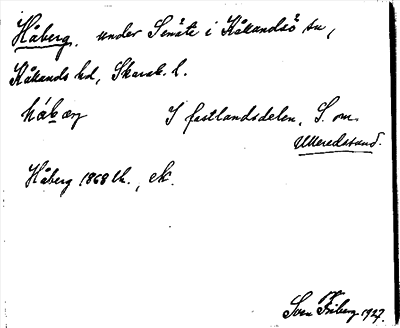 Håberg, under Senäte i Kållandsö sn,
Kållands hd, Skarab. l.
håbærj
I fastlandsdelen, S. om
Ulleredsund.
Håberg 1868 Ek.
Sven Friberg 1927.